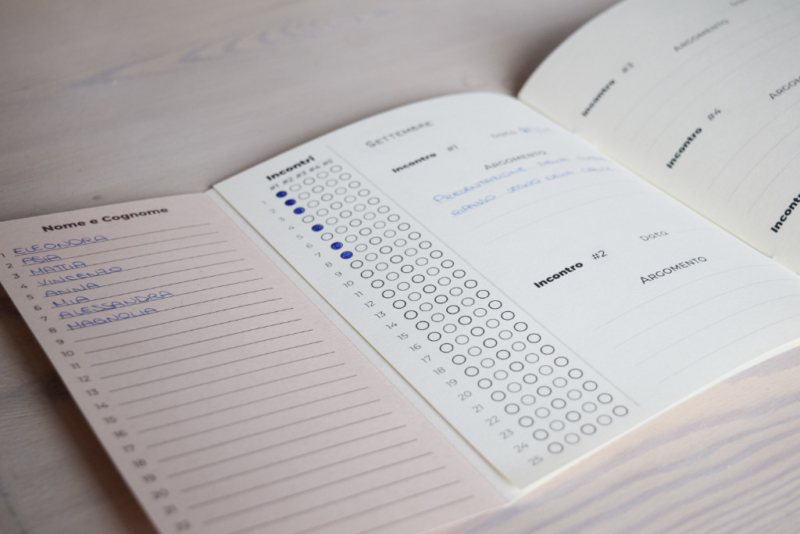 Nome e Cognome
1 ELEONORA
2 ASIA
3 MATTIA
4 VINCENZO
5 ANNA
6 MIA
7 ALESSANDRA
8 MAGNOLIA
9
10
11
12
13
14
15
16
17
18
19
20
21
22
Incontri
#1 #2 #3 #4 #5
1
2
3
4
5
6
7
8
9
10
11
12
13
14
15
16
17
18
19
20
21
22
23
24
25
SETTEMBRE
Incontro #1 Data
ARGOMENTO
PRESENTAZIONE DELLE
Incontro #2 Data
ARGOMENTO
Incontro #3
ARGOMENTO
Incontro #4